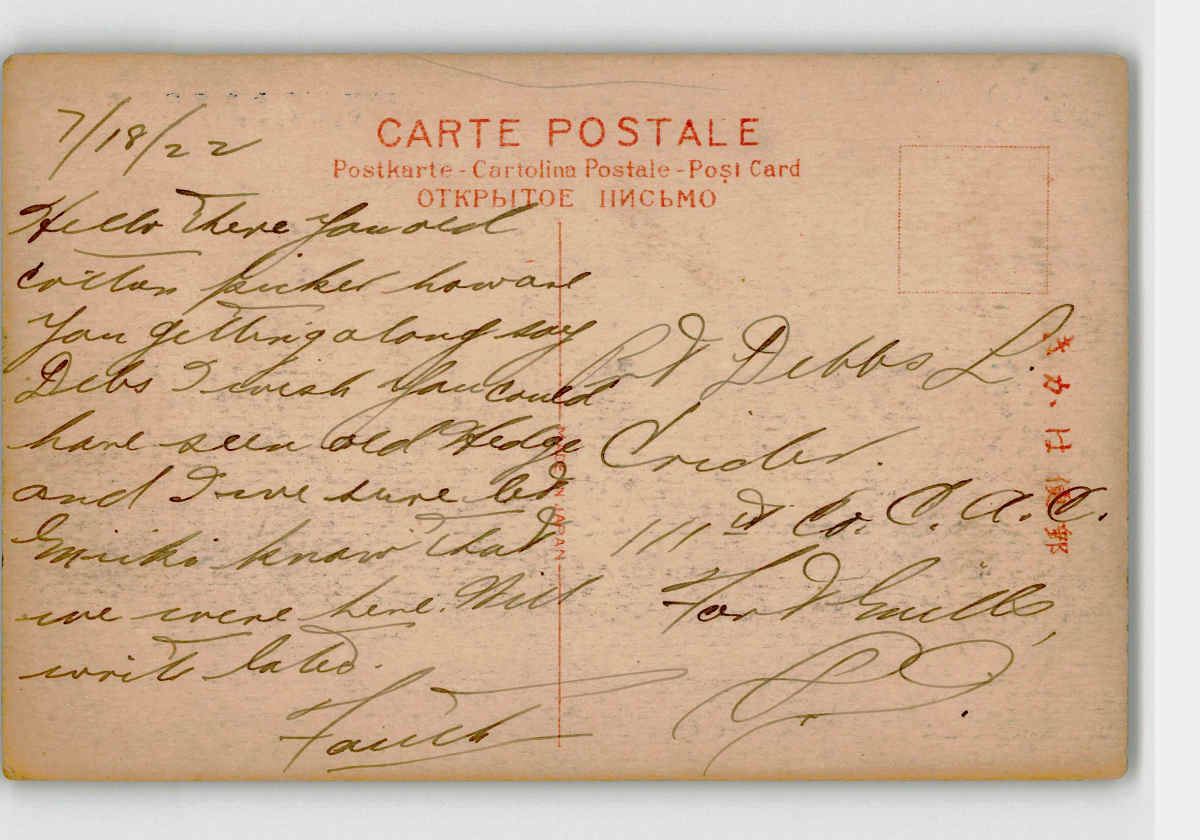 7/18/22
CARTE POSTALE
Postkarte - Cartolina Postale - Post Card
ОТКРЫТОЕ ПИСЬМО
Hello There You old
cotton picker how are
You getting along say
Debs I wish You could
have seen old Hedge
and I we sure let
know that
we were here. Will
write later.
Pvt Debbs L.
Crider.
111th Co. C. A. C.
Fort Mills,
P. I.
MADE IN JAPAN